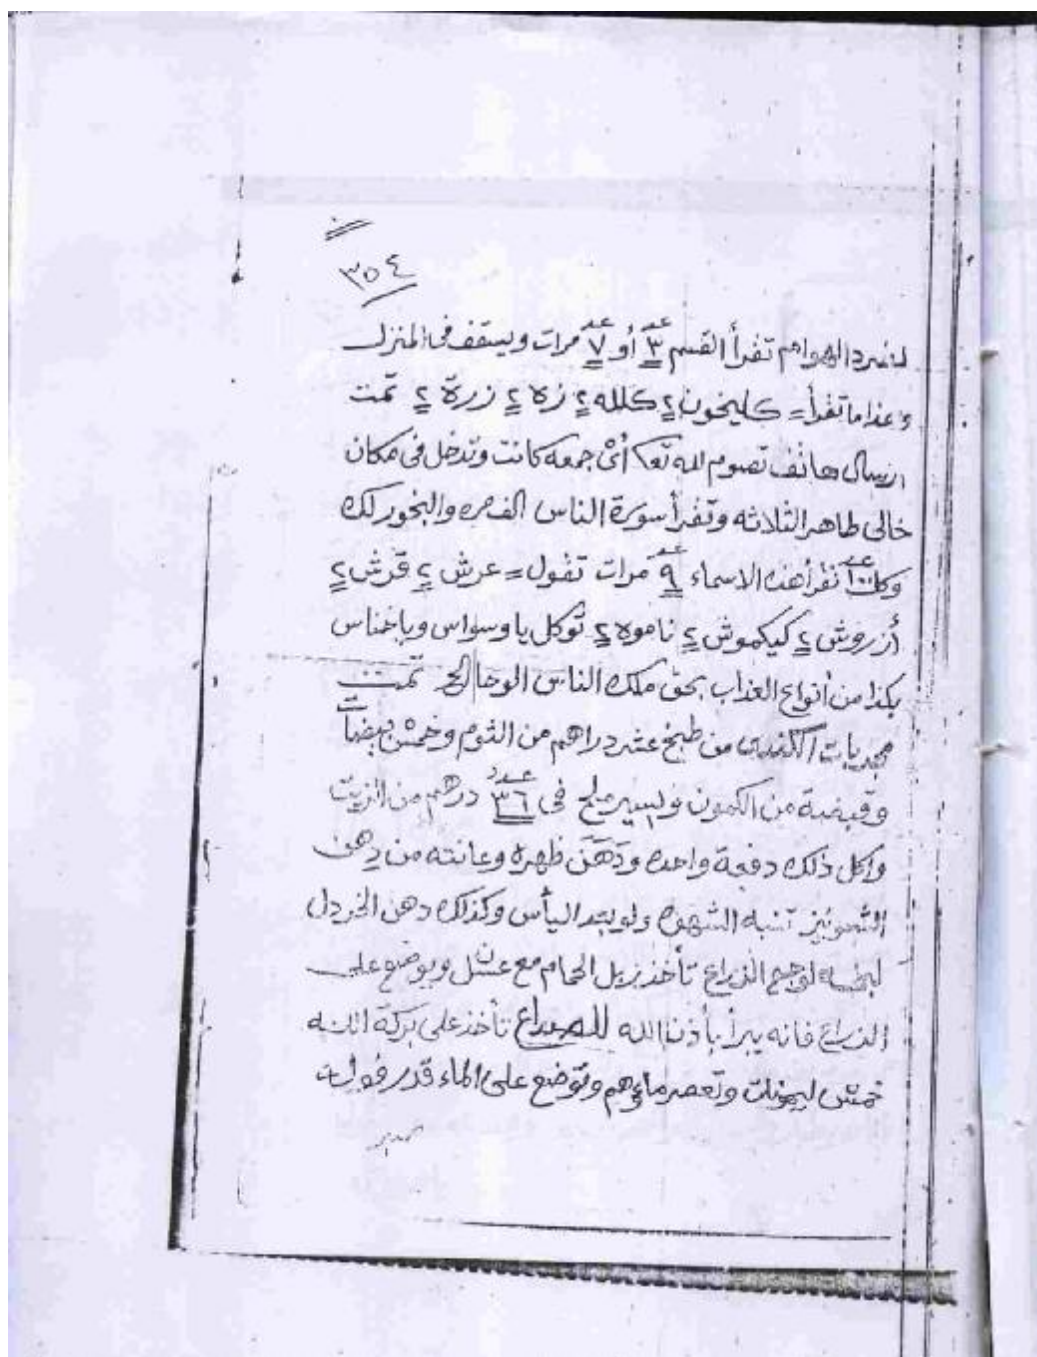 ٣٥٤
لطرد الهوام تقرأ القسم عد ٣ أو عد ٧ مرات ويسقف في المنزل
وهذا ما تقرأ = كليخون ٢ كلله ٢ زه ٢ زرة ٢ تمت
ارسال هاتف تصوم لله تعا أىّ جمعه كانت وتدخل فى مكان
خالى طاهر الثلاثه وتقرأ سورة الناس الف مره والبخور لك
وكل عد ١٠٠ تقرأ هذه الاسماء عد ٩ مرات تقول = عرش ٢ قرش ٢
أزروش ٢ كيكموش ٢ ناموه ٢ توكل يا وسواس ويا خناس
بكذا من أنواع العذاب بحق ملك الناس الوحا الخ تمت
مجربات الكندى من طبخ عشر دراهم من الثوم وخمس بيضات
وقبضة من الكمون ويسير ملح فى عدد ٣٦ درهم من الزيت
وأكل ذلك دفعة واحده ودهن ظهره وعانته من دهن
الشونيز تنبه الشهوه ولو بعد اليأس وكذلك دهن الخردل
لوجع الذراع تأخذ زبل الحمام مع عسل ويوضع على
الذراع فانه يبرأ بأذن الله للصداع تأخذ على بركة الله
خمس ليمونات وتعصر ماؤهم وتوضع على الماء قدر فوله